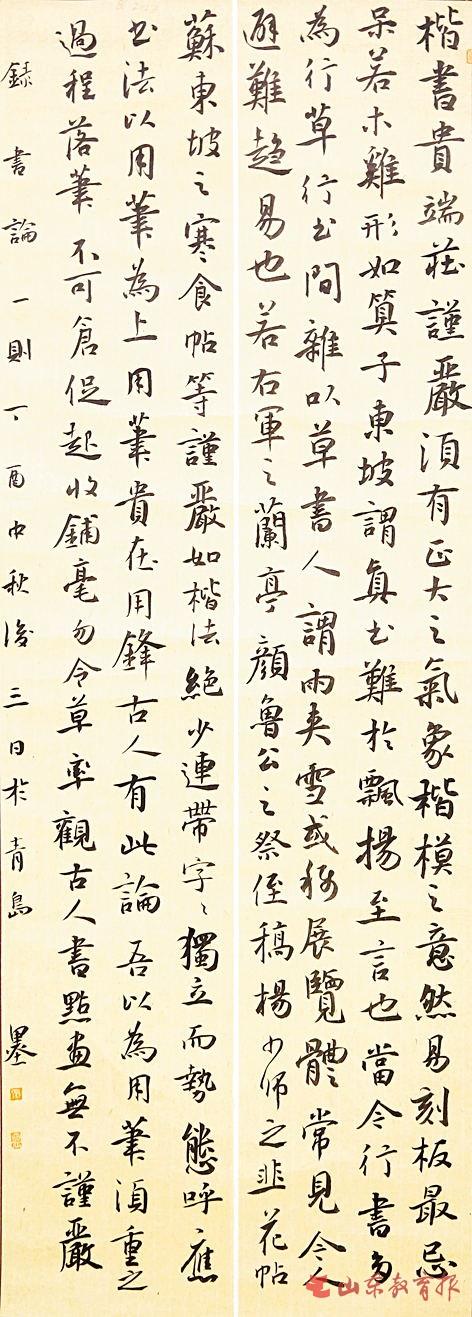 楷書貴端莊謹嚴須有正大之氣象楷模之意然易刻板最忌
呆若木雞形如算子東坡謂真書難於飄揚至言也當今行書多
為行草行書間雜以草書人謂雨夹雪或称展覽體常見今人
避難趋易也若右軍之蘭亭顏魯公之祭侄稿楊少師之韭花帖
蘇東坡之寒食帖等謹嚴如楷法絶少連帶字字獨立而勢態呼應
書法以用筆為上用筆貴在用鋒古人有此論吾以為用筆須重之
過程落筆不可倉促起收鋪毫勿令草率觀古人書點畫無不謹嚴
録書論一則丁酉中秋後三日於青島
墨
山东教育报